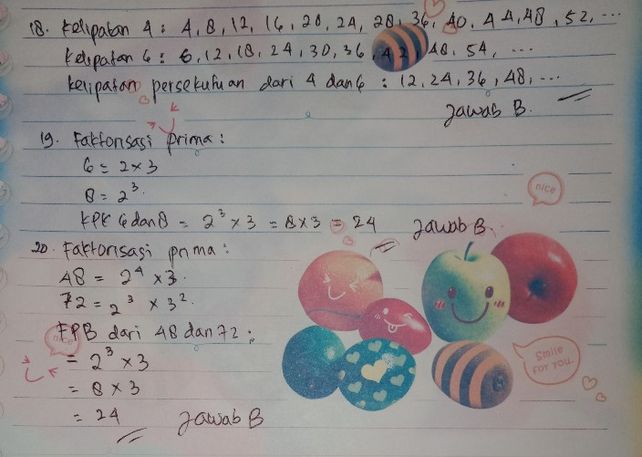 18. Kelipatan 4 : 4, 8, 12, 16, 20, 24, 28, 36, 40, 44, 48, 52, ...
Kelipatan 6 : 6, 12, 18, 24, 30, 36, 42, 48, 54, ...
kelipatan persekutuan dari 4 dan 6 : 12, 24, 36, 48, ...
Jawab B.
19. Faktorisasi prima :
6 = 2 × 3
8 = 2³.
KPK 6 dan 8 = 2³ × 3 = 8 × 3 = 24 Jawab B.
nice
20. Faktorisasi prima :
48 = 2⁴ × 3.
72 = 2³ × 3².
FPB dari 48 dan 72 :
nice
= 2³ × 3
= 8 × 3
= 24 Jawab B
Smile
FOR YOU.